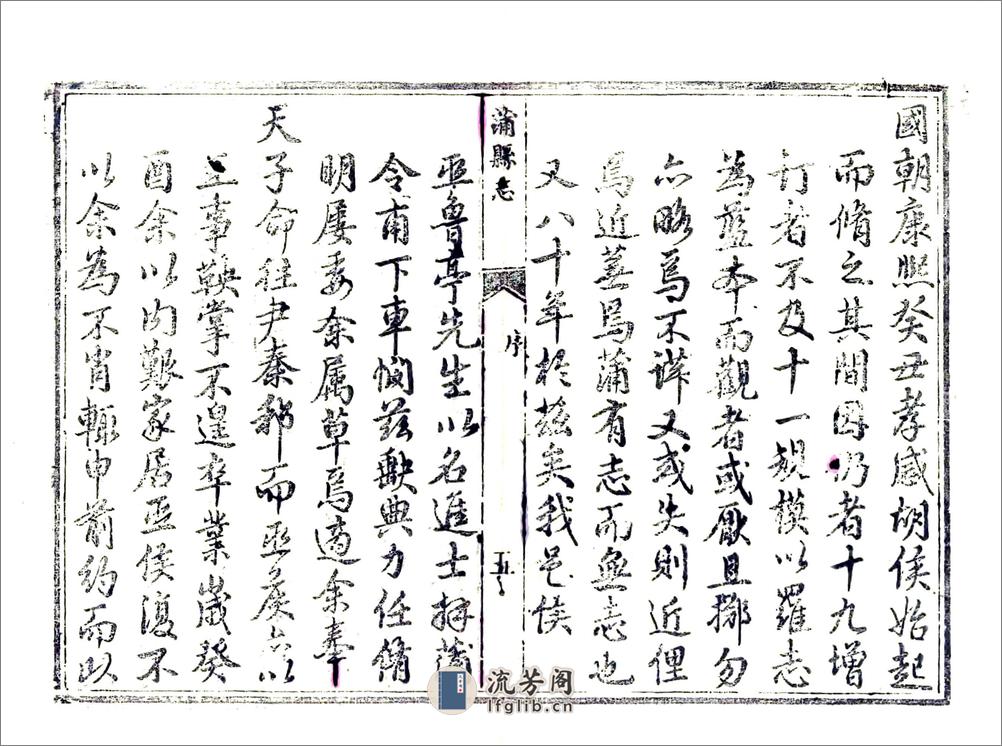 國朝康熙癸丑孝感胡侯始起
而脩之其間因仍者十九增
訂者不及十一規模以羅志
為藍本而觀者或厭且擲勿
亦略焉不詳又或失則近俚
焉近蕪焉蒲有志而無志也
又八十年於茲矣我邑侯
蒲縣志
序
五
巫魯亭先生以名進士拜蒲
令甫下車憫茲缺典力任脩
明屢委余属草焉適余奉
天
子命往尹秦郵而巫侯亦以
王事鞅掌不遑卒業歲癸
酉余以內艱家居巫侯復不
以余為不肖輒申前約而以
流芳阁
lfglib.cn